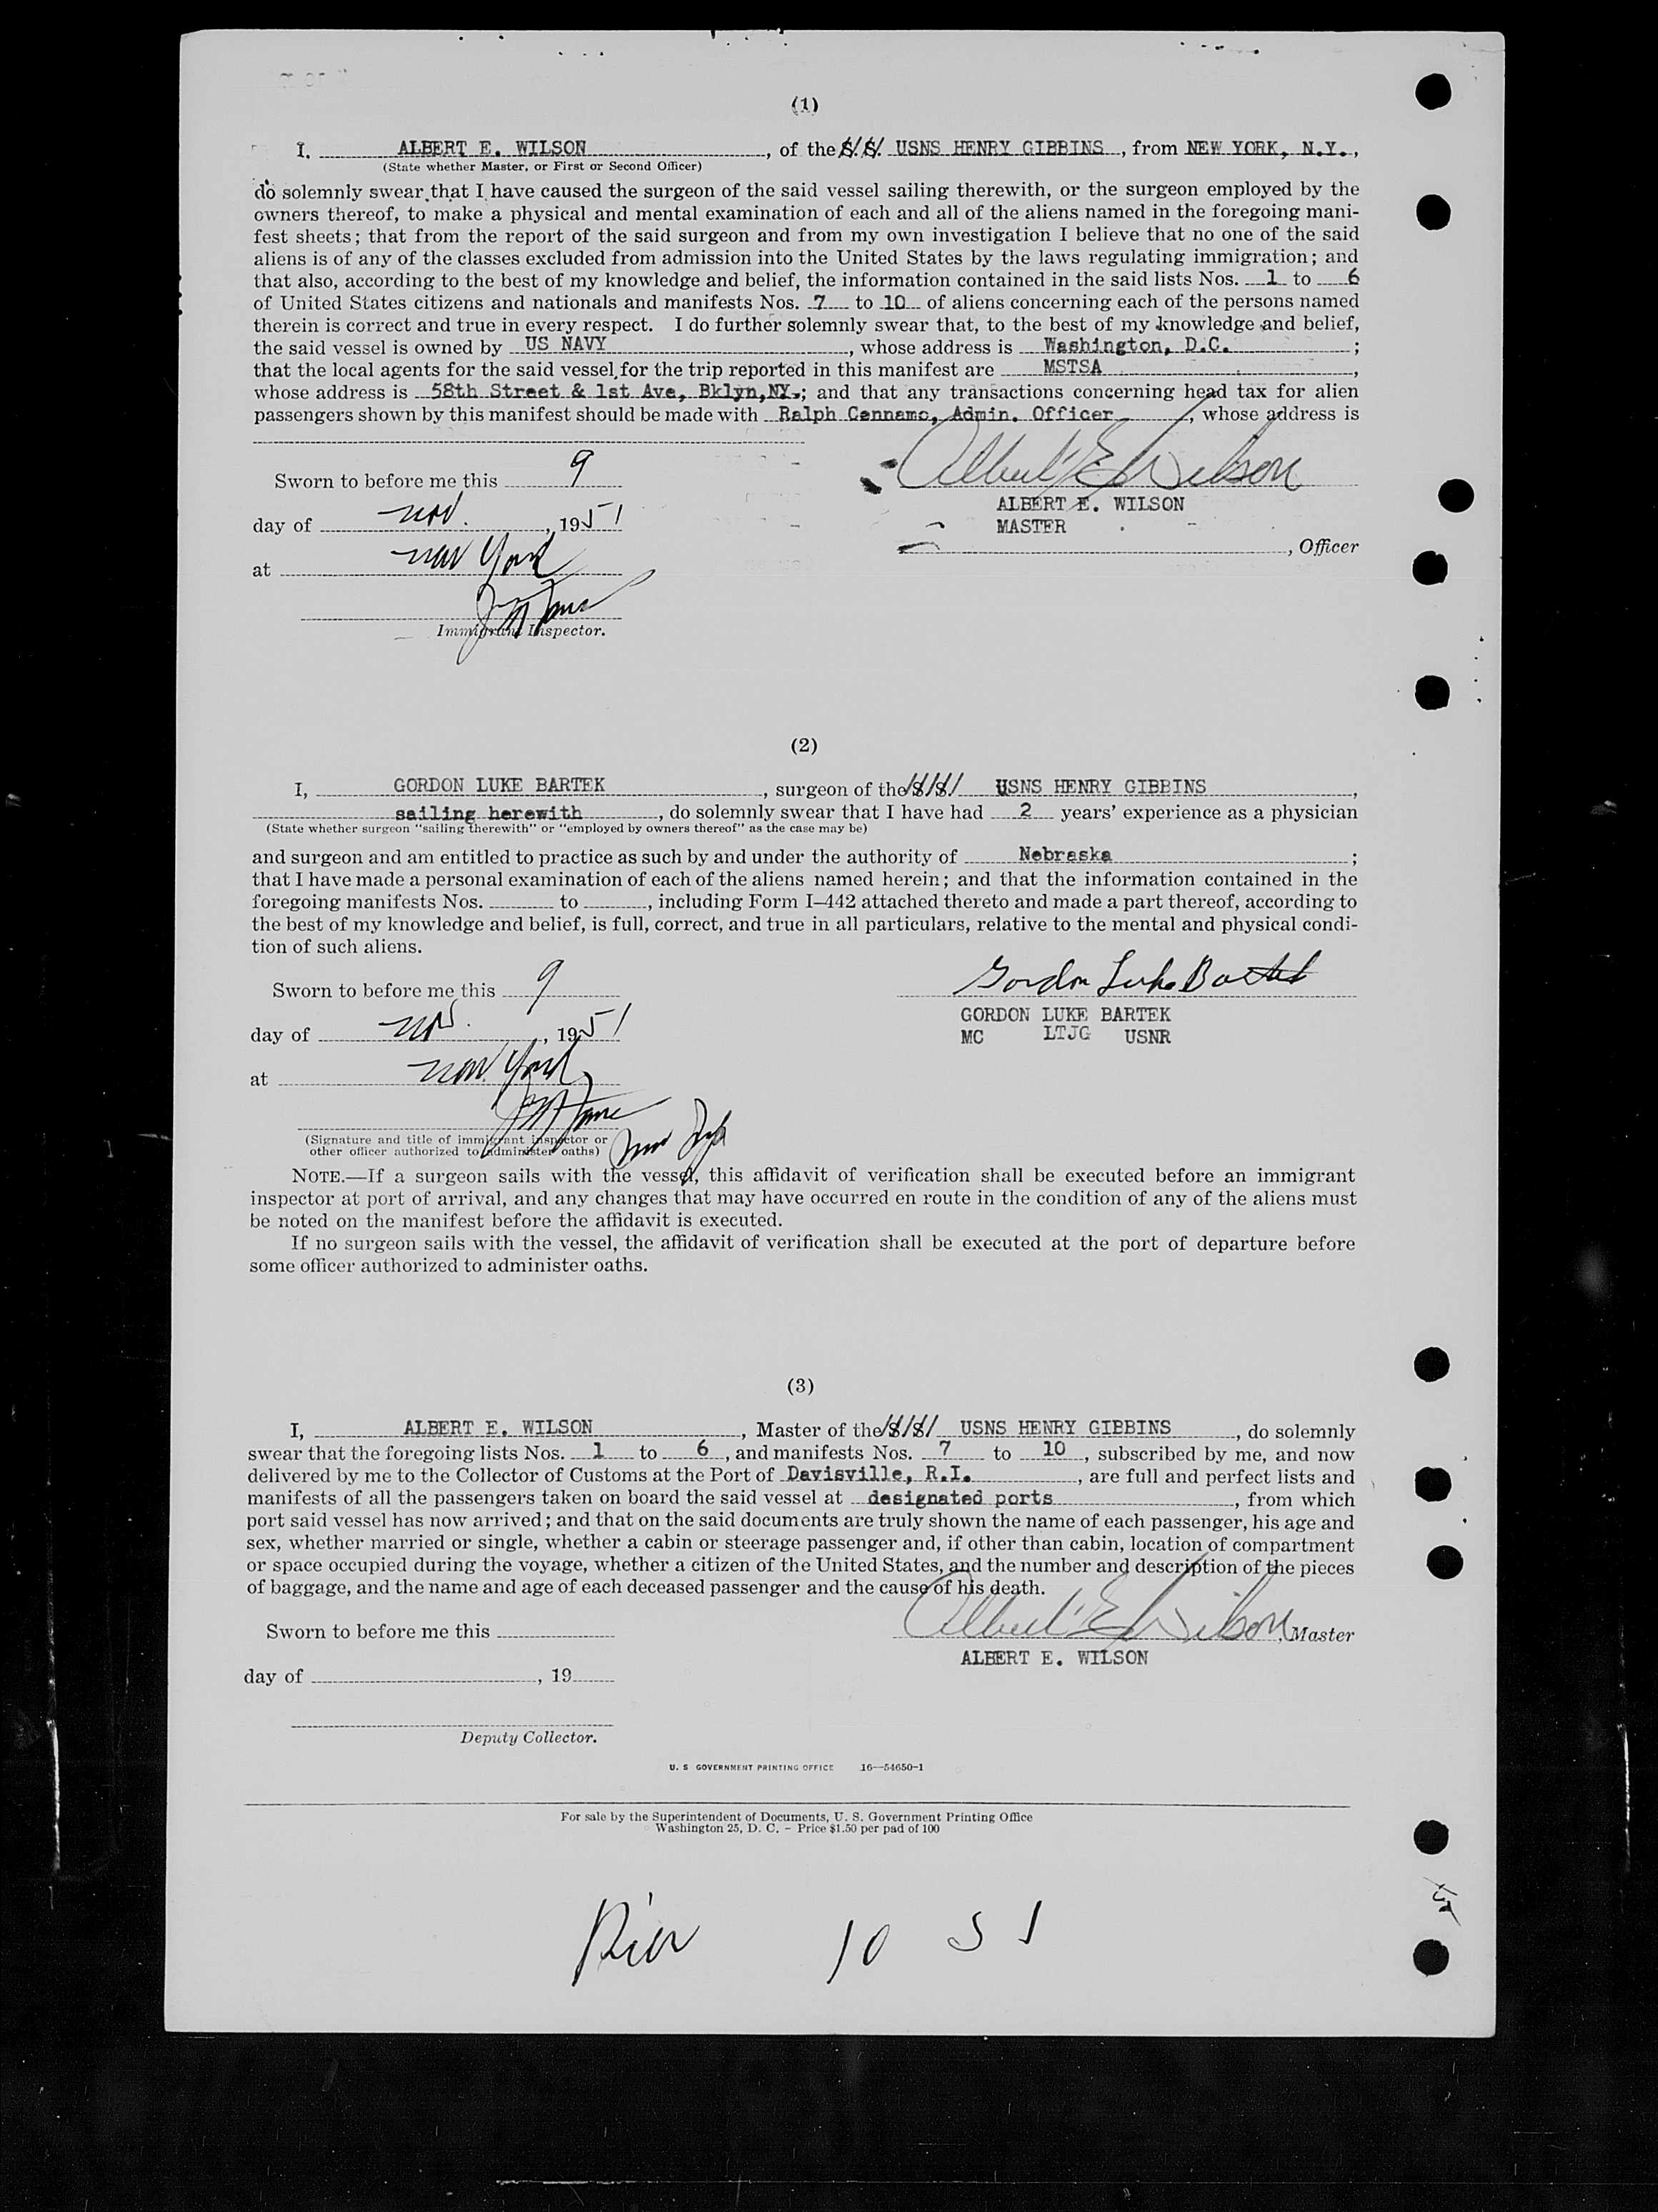 (1)
I, ALBERT E. WILSON, of the S. S. USNS HENRY GIBBINS, from NEW YORK, N.Y.,
(State whether Master, or First or Second Officer)
do solemnly swear that I have caused the surgeon of the said vessel sailing therewith, or the surgeon employed by the
owners thereof, to make a physical and mental examination of each and all of the aliens named in the foregoing mani-
fest sheets; that from the report of the said surgeon and from my own investigation I believe that no one of the said
aliens is of any of the classes excluded from admission into the United States by the laws regulating immigration; and
that also, according to the best of my knowledge and belief, the information contained in the said lists Nos. 1 to 6
of United States citizens and nationals and manifests Nos. 7 to 10 of aliens concerning each of the persons named
therein is correct and true in every respect. I do further solemnly swear that, to the best of my knowledge and belief,
the said vessel is owned by US NAVY, whose address is Washington, D.C. ;
that the local agents for the said vessel for the trip reported in this manifest are MSTSA,
whose address is 58th Street & 1st Ave, Bklyn,NY.; and that any transactions concerning head tax for alien
passengers shown by this manifest should be made with Ralph Cennamo, Admin. Officer, whose address is
Albert E Wilson
Sworn to before me this 9
ALBERT E. WILSON
day of Nov. , 1951
MASTER
, Officer
at New York
Immigrant Inspector.
(2)
I, GORDON LUKE BARTEK, surgeon of the S. S. USNS HENRY GIBBINS,
sailing herewith, do solemnly swear that I have had 2 years' experience as a physician
(State whether surgeon "sailing therewith" or "employed by owners thereof" as the case may be)
and surgeon and am entitled to practice as such by and under the authority of Nebraska ;
that I have made a personal examination of each of the aliens named herein; and that the information contained in the
foregoing manifests Nos. to , including Form I-442 attached thereto and made a part thereof, according to
the best of my knowledge and belief, is full, correct, and true in all particulars, relative to the mental and physical condi-
tion of such aliens.
Gordon Luke Bartek
Sworn to before me this 9
GORDON LUKE BARTEK
day of Nov. , 1951
MC LTJG USNR
at New York
(Signature and title of immigrant inspector or
other officer authorized to administer oaths)
NOTE.—If a surgeon sails with the vessel, this affidavit of verification shall be executed before an immigrant
inspector at port of arrival, and any changes that may have occurred en route in the condition of any of the aliens must
be noted on the manifest before the affidavit is executed.
If no surgeon sails with the vessel, the affidavit of verification shall be executed at the port of departure before
some officer authorized to administer oaths.
(3)
I, ALBERT E. WILSON, Master of the S. S. USNS HENRY GIBBINS, do solemnly
swear that the foregoing lists Nos. 1 to 6, and manifests Nos. 7 to 10, subscribed by me, and now
delivered by me to the Collector of Customs at the Port of Davisville, R.I., are full and perfect lists and
manifests of all the passengers taken on board the said vessel at designated ports, from which
port said vessel has now arrived; and that on the said documents are truly shown the name of each passenger, his age and
sex, whether married or single, whether a cabin or steerage passenger and, if other than cabin, location of compartment
or space occupied during the voyage, whether a citizen of the United States, and the number and description of the pieces
of baggage, and the name and age of each deceased passenger and the cause of his death.
Albert E Wilson, Master
Sworn to before me this
ALBERT E. WILSON
day of , 19
Deputy Collector.
U. S GOVERNMENT PRINTING OFFICE 16—54650-1
For sale by the Superintendent of Documents, U. S. Government Printing Office
Washington 25, D. C. - Price $1.50 per pad of 100
Pier 10 S I